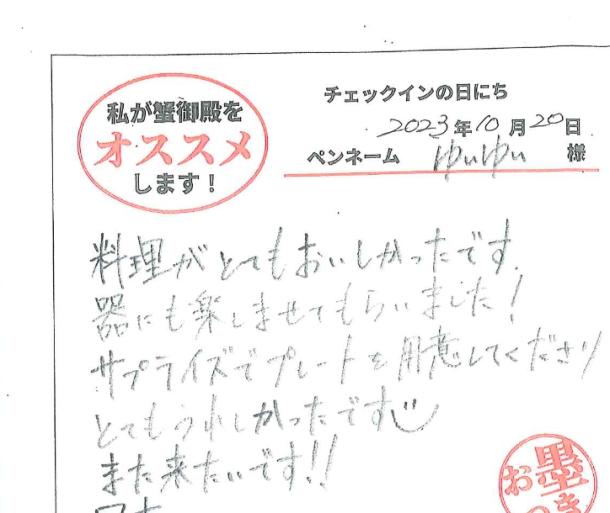 私が蟹御殿を
オススメ
します!
チェックインの日にち
2023年10月20日
ペンネーム ゆいゆい 様
料理がとてもおいしかったです。
器にも楽しませてもらいました!
サプライズでプレートを用意してくださり
とてもうれしかったです
また来たいです!!
お墨つき